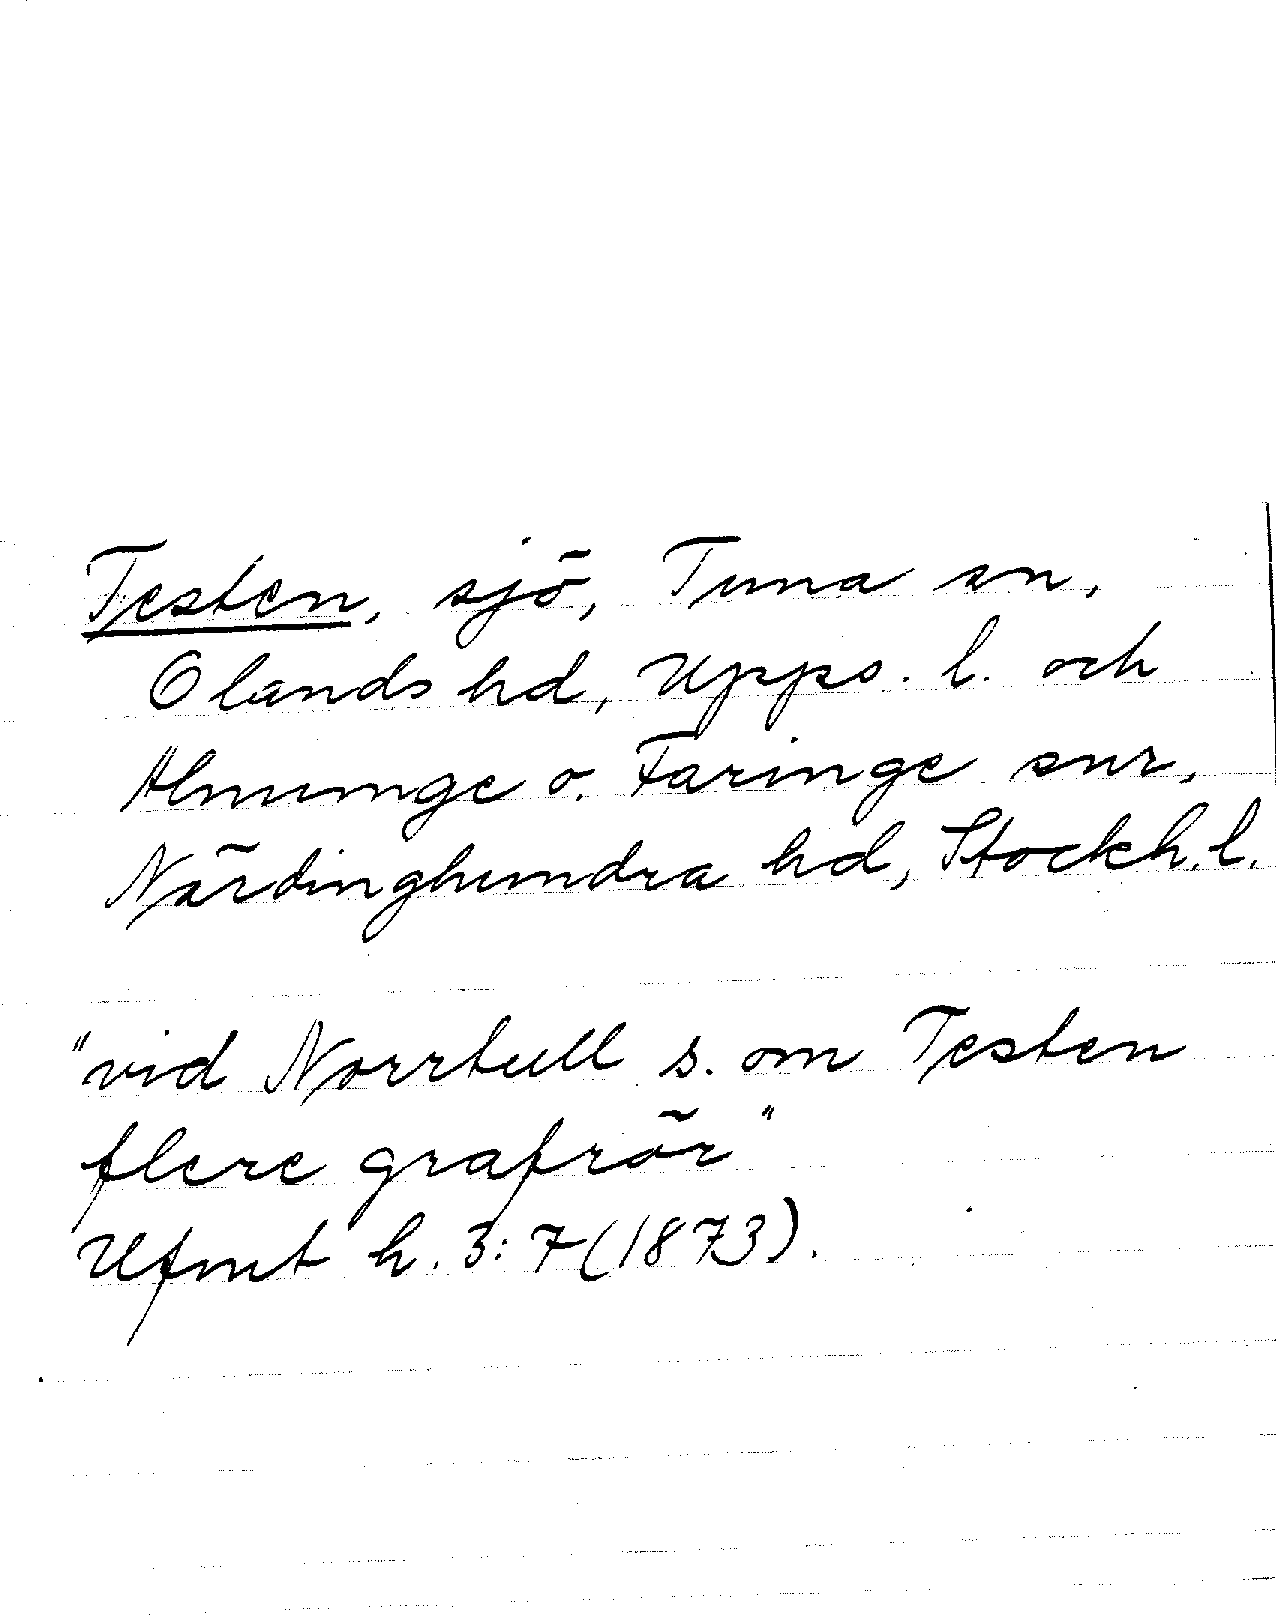 Testen, sjö, Tuna sn,
Olands hd, Upps. l. och
Almunge o. Faringe snr,
Närdinghundra hd, Stockh. l.
"vid Norrtull s. om Testen
flere grafrör"
Ufmt h. 3:7 (1873).